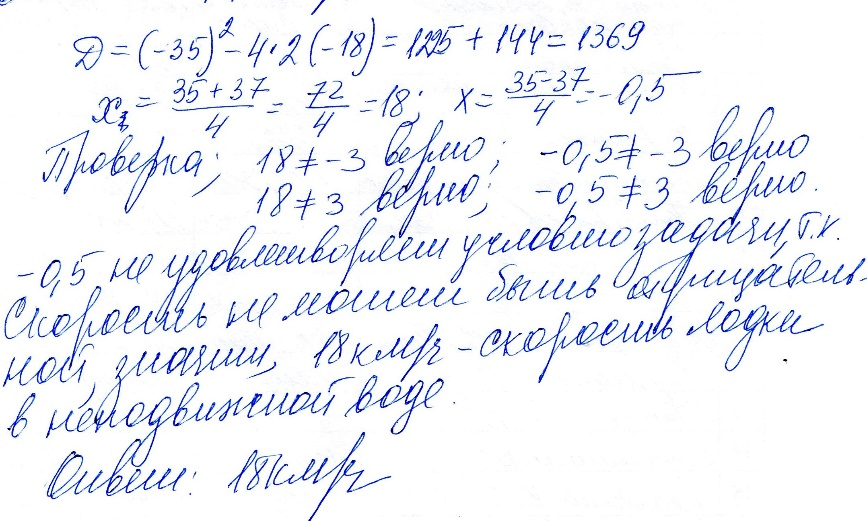 Д = (-35)² - 4·2(-18) = 1225 + 144 = 1369
x₁ = (35+37)/4 = 72/4 = 18; x = (35-37)/4 = -0,5
Проверка; 18 ≠ -3 верно; -0,5 ≠ -3 верно
18 ≠ 3 верно; -0,5 ≠ 3 верно.
-0,5 не удовлетворяет условию задачи, т.к.
скорость не может быть отрицатель-
ной, значит, 18 км/ч - скорость лодки
в неподвижной воде.
Ответ: 18 км/ч